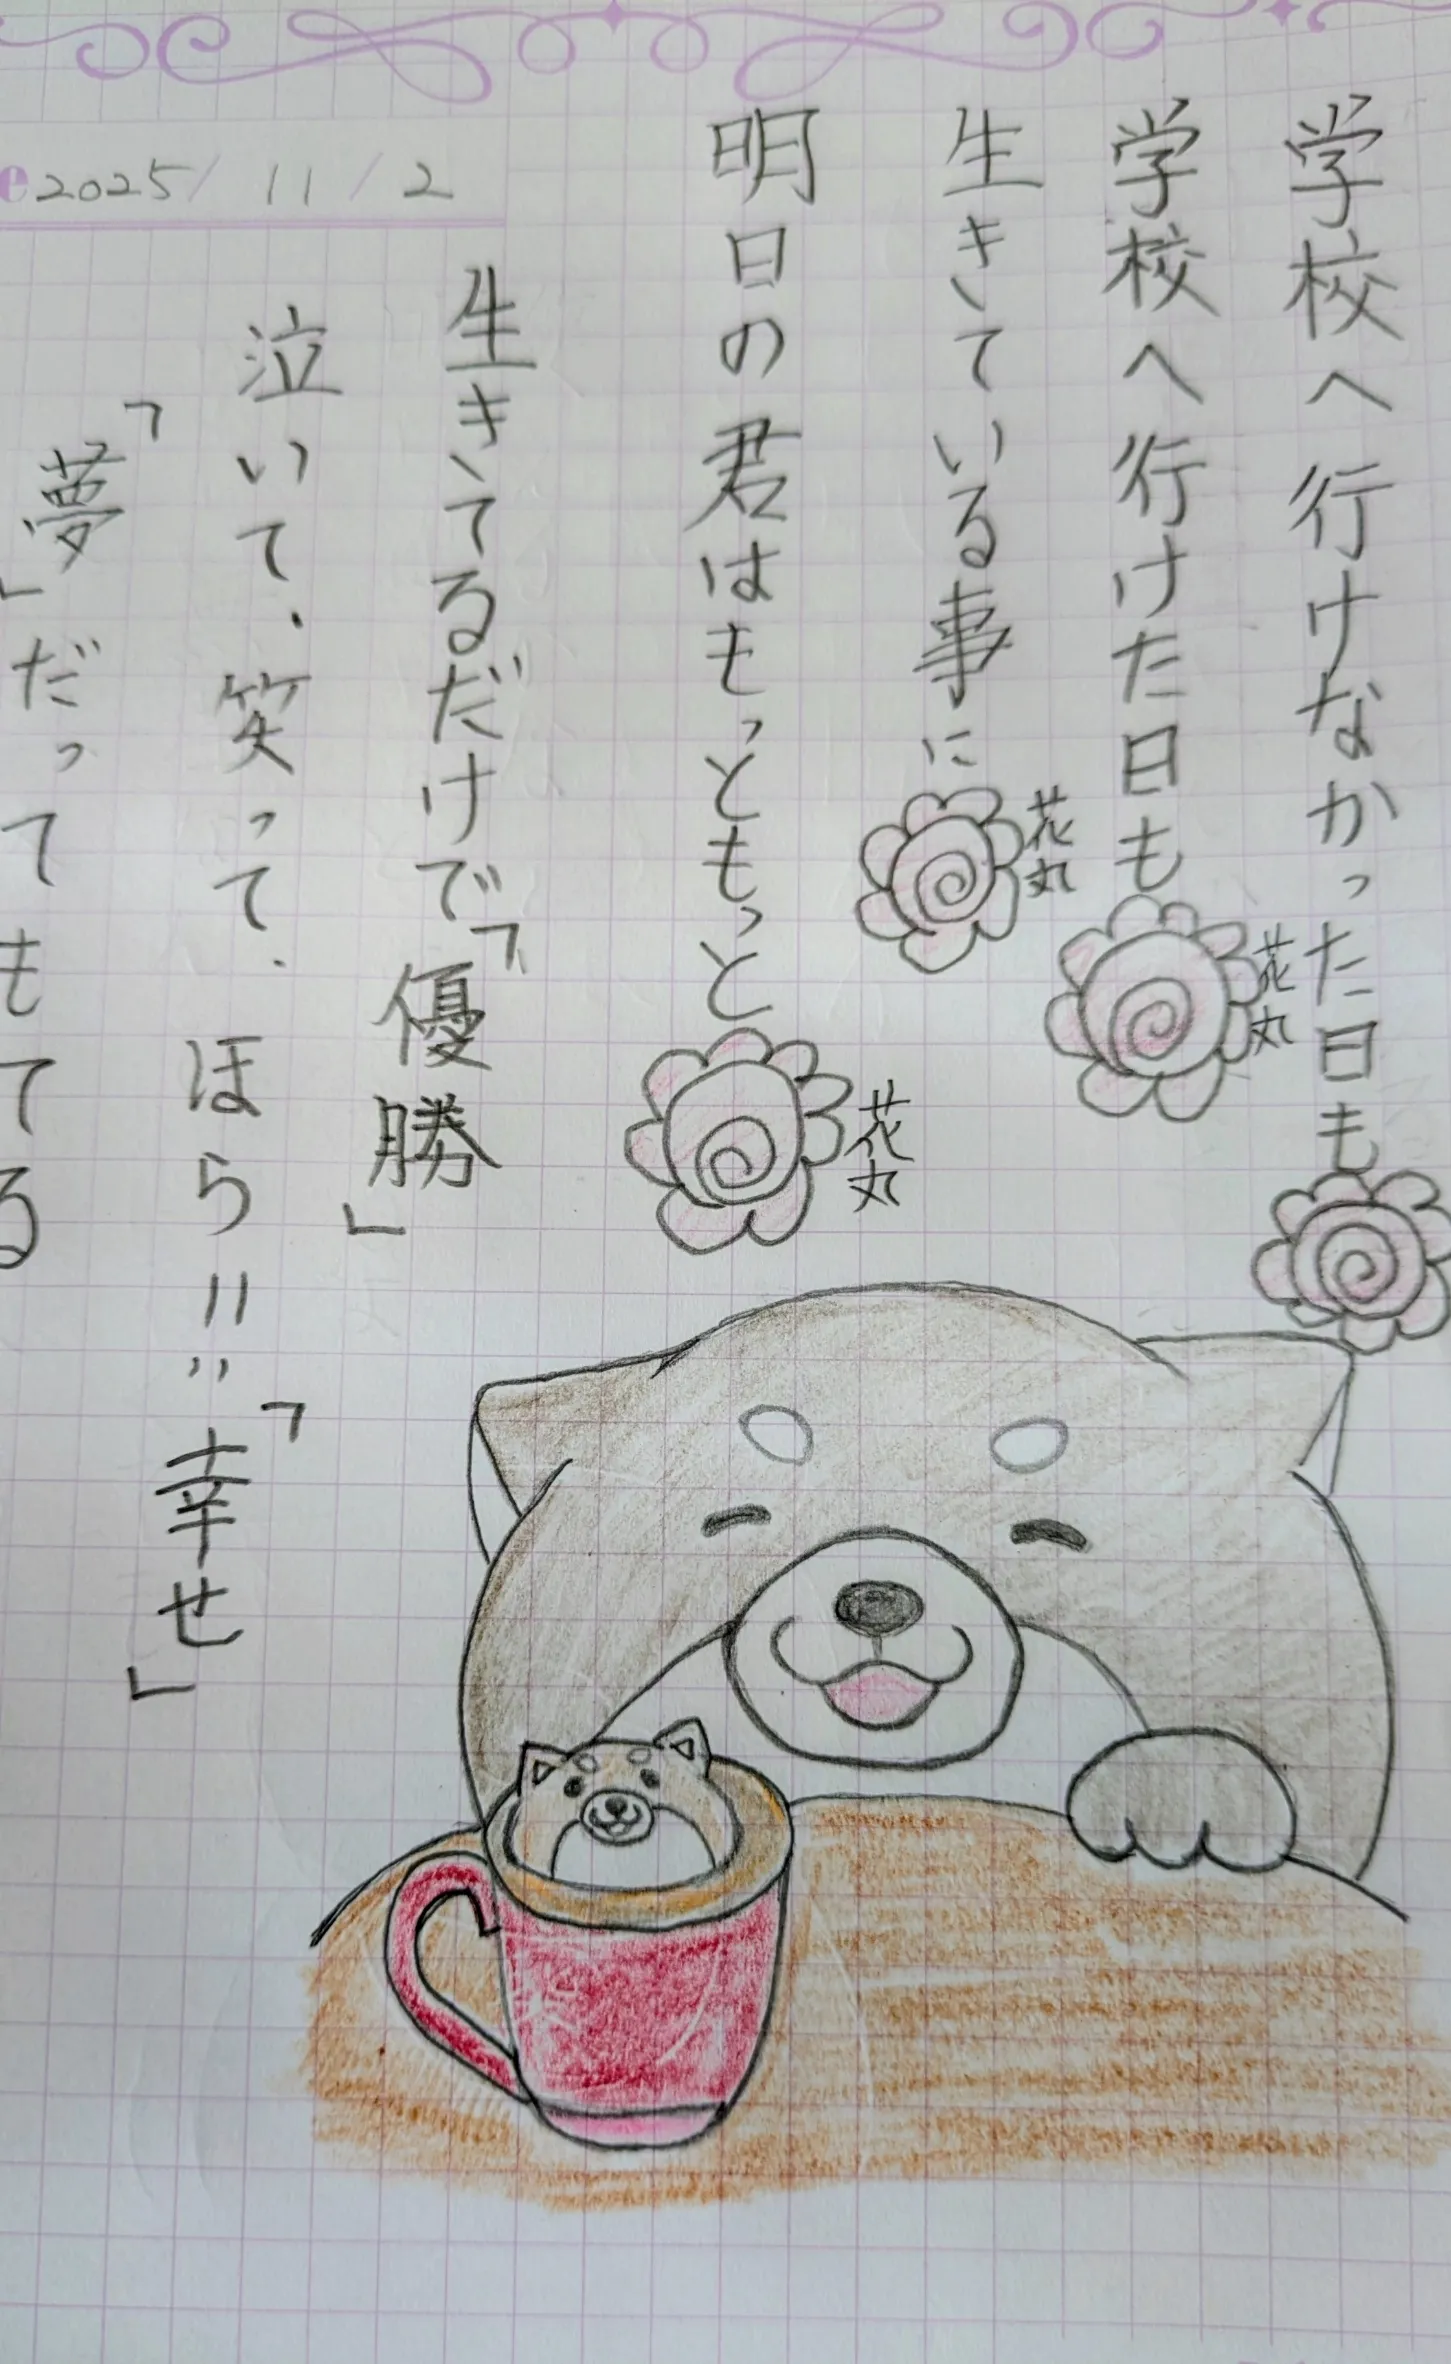 学校へ行けなかった日も
学校へ行けた日も
花丸
生きている事に
花丸
明日の君はもっともっと
花丸
2025/11/2
生きてるだけで「優勝」
泣いて、笑って、ほら!!「幸せ」
「夢」だってもてる